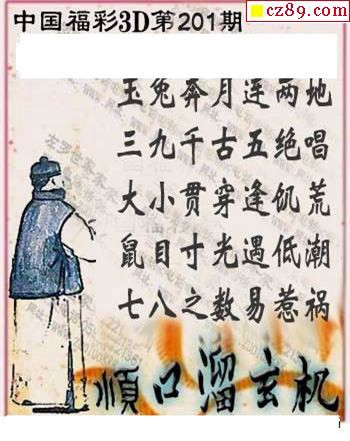 cz89.com
中国福彩3D第201期
玉兔奔月莲两地
三九千古五绝唱
大小贯穿逢饥荒
鼠目寸光遇低潮
七八之数易惹祸
順口溜玄机